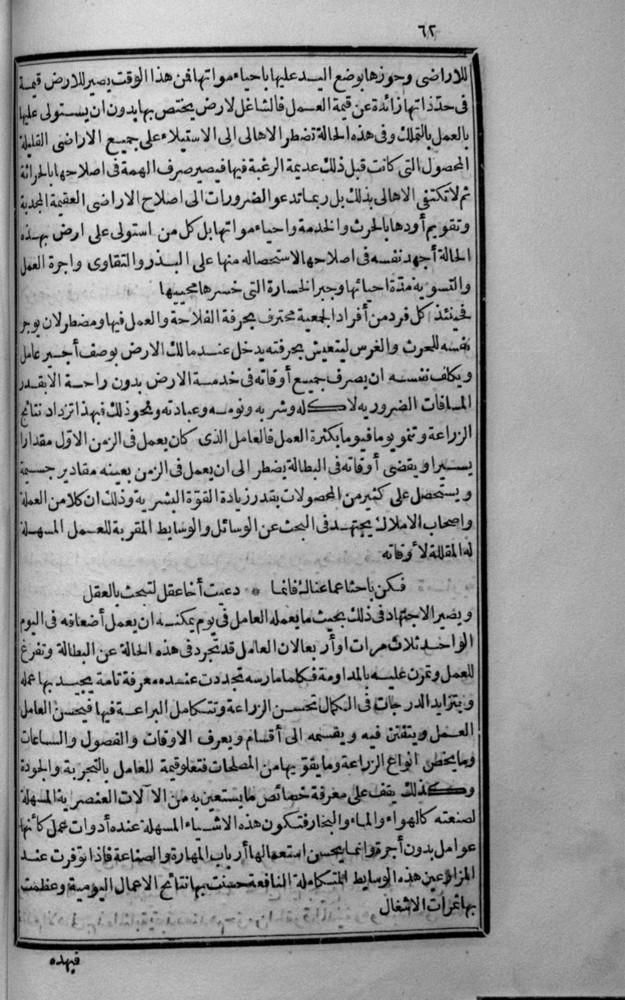 ٦٢
للاراضى وحوزها بوضع اليد عليها باحياء مواتها فمن هذا الوقت يصير للارض قيمة
فى حد ذاتها زائدة عن قيمة العمل فالشاغل لارض يختص بها بدون ان يستولى عليها
بالعمل بالتملك وفى هذه الحالة تضطر الاهالى الى الاستيلاء على جميع الاراضى القليلة
المحصول التى كانت قبل ذلك عديمة الرغبة فيها فيصير صرف الهمة فى اصلاحها بالحراثة
ثم لا تكتفى الاهالى بذلك بل ربما تدعو الضرورات الى اصلاح الاراضى العقيمة المجدبة
وتقويم أودها بالحرث والخدمة واحياء مواتها بل كل من استولى على ارض بهذه
الحالة أجهد نفسه فى اصلاحها لاستحصاله منها على البذر والتقاوى واجرة العمل
والتسوية مدة احيائها وجبر الخسارة التى خسرها محييها
فحينئذ كل فرد من أفراد الجمعية محترف بحرفة الفلاحة والعمل فيها ومضطر لان يوجر
نفسه للحرث والغرس ليتعيش بحرفته يدخل عند مالك الارض بوصف أجير عامل
ويكلف نفسه ان يصرف جميع أوقاته فى خدمة الارض بدون راحة الا بقدر
المسافات الضرورية لاكله وشربه ونومه وعبادته ونحو ذلك فبهذا تزداد نتائج
الزراعة وتنمو يوما فيوما بكثرة العمل فالعامل الذى كان يعمل فى الزمن الاول مقدارا
يسيرا ويقضى أوقاته فى البطالة يضطر الى ان يعمل فى الزمن بعينه مقادير جسيمة
ويستحصل على كثير من المحصولات بقدر زيادة القوة البشرية وذلك ان كلا من العملة
واصحاب الاملاك يجتهد فى البحث عن الوسائل والوسايط المقربة للعمل المسهلة
له المقللة لأوقاته
فكن باحثا عما عناك فانما * دعيت أخا عقل لتبحث بالعقل
ويصير الاجتهاد فى ذلك بحيث ما يعمله العامل فى يوم يمكنه ان يعمل أضعافه فى اليوم
الواحد ثلاث مرات او أربعا لان العامل قد تجرد فى هذه الحالة عن البطالة وتفرغ
للعمل وتمرن عليه بالمداومة فكلما مارسه تجددت عنده معرفة تامة يجيد بها عمله
وبتزايد الدرجات فى الكمال تحسن الزراعة وتتكامل البراعة فيها فيحسن العامل
العمل ويتفنن فيه ويقسمه الى أقسام ويعرف الاوقات والفصول والساعات
وما يخص انواع الزراعة وما يقويها من المصلحات فتعلو قيمة العامل بالتجربة والجودة
وكذلك يقف على معرفة خصائص ما يستعين به من الآلات العنصرية المسهلة
لصنعته كالهواء والماء والبخار فتكون هذه الاشياء المسهلة عنده أدوات عمل كأنها
عوامل بدون أجرة وانما يحسن استعمالها أرباب المهارة والصناعة فاذا توفرت عند
المزارعين هذه الوسايط المتكاملة النافعة حسنت بها نتائج الاعمال اليومية وعظمت
بها ثمرات الاشغال
فبهذه